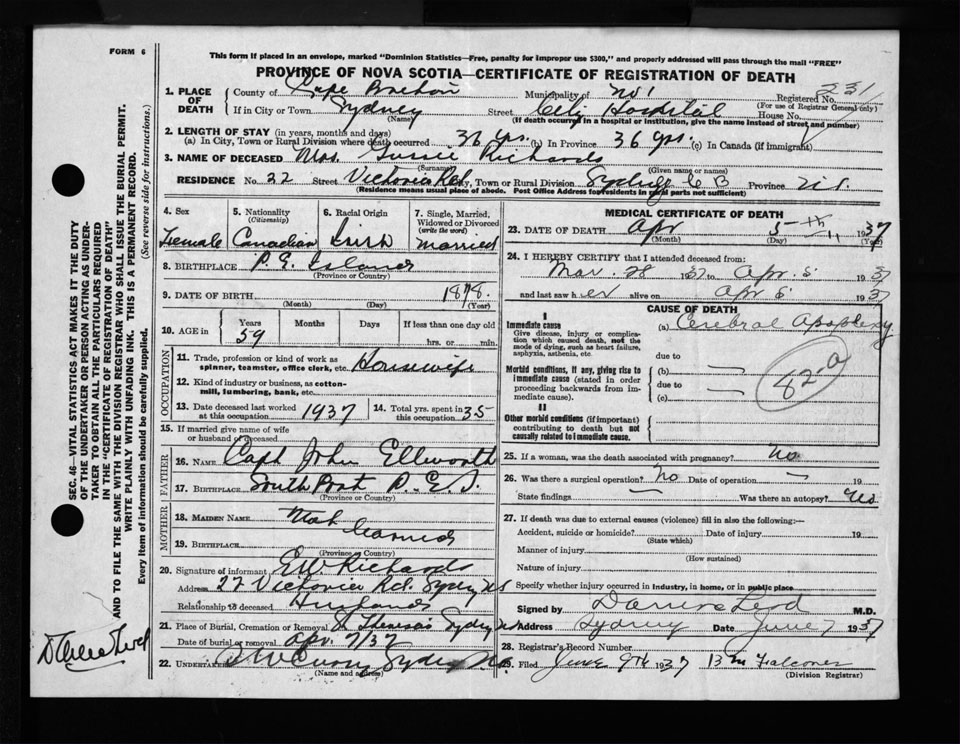 FORM 6
This form if placed in an envelope, marked "Dominion Statistics—Free, penalty for improper use $300," and properly addressed will pass through the mail "FREE"
PROVINCE OF NOVA SCOTIA—CERTIFICATE OF REGISTRATION OF DEATH
1. PLACE OF DEATH County of Cape Breton Municipality of No 1 Registered No. 231
(For use of Registrar General only)
If in City or Town Sydney Street City Hospital House No.
(Name) (If death occurred in a hospital or institution, give the name instead of street and number)
2. LENGTH OF STAY (in years, months and days)
(a) In City, Town or Rural Division where death occurred 36 yrs. (b) In Province 36 yrs. (c) In Canada (if immigrant)
3. NAME OF DECEASED Mrs. Richards
(Surname) (Given name or names)
RESIDENCE No. 22 Street Victoria Rd City, Town or Rural Division Sydney C B Province N.S.
(Residence means usual place of abode. Post Office Address for residents in rural parts not sufficient)
4. Sex Female
5. Nationality (Citizenship) Canadian
6. Racial Origin Irish
7. Single, Married, Widowed or Divorced (write the word) married
8. BIRTHPLACE P.E. Island
(Province or Country)
9. DATE OF BIRTH 1878.
(Month) (Day) (Year)
10. AGE in Years Months Days If less than one day
59 hrs. or min.
OCCUPATION
11. Trade, profession or kind of work as spinner, teamster, office clerk, etc. Housewife
12. Kind of industry or business, as cotton-mill, lumbering, bank, etc.
13. Date deceased last worked at this occupation 1937
14. Total yrs. spent in this occupation 35
15. If married give name of wife or husband of deceased
FATHER
16. NAME Capt John Ellworth
17. BIRTHPLACE South Port P.E.I.
(Province or Country)
MOTHER
18. MAIDEN NAME
19. BIRTHPLACE
(Province or Country)
20. Signature of informant E W Richards
Address 22 Victoria Rd. Sydney NS
Relationship to deceased Husband
21. Place of Burial, Cremation or Removal St Theresas Sydney NS
Date of burial or removal Apr. 7/37
22. UNDERTAKER Sydney N.S.
(Name and address)
MEDICAL CERTIFICATE OF DEATH
23. DATE OF DEATH Apr 5th 1937
(Month) (Day) (Year)
24. I HEREBY CERTIFY that I attended deceased from:
Mar. 28 1937 to Apr. 5 1937
and last saw her alive on Apr 5 1937
CAUSE OF DEATH
I
Immediate cause
Give disease, injury or complication which caused death, not the mode of dying, such as heart failure, asphyxia, asthenia, etc.
(a) Cerebral Apoplexy
due to
Morbid conditions, if any, giving rise to immediate cause (stated in order proceeding backwards from immediate cause).
(b) —
due to
(c) —
82-a
II
Other morbid conditions (if important) contributing to death but not causally related to immediate cause.
25. If a woman, was the death associated with pregnancy? No
26. Was there a surgical operation? No Date of operation — 19
State findings — Was there an autopsy? No
27. If death was due to external causes (violence) fill in also the following:—
Accident, suicide or homicide? Date of injury 19
(State which)
Manner of injury
(How sustained)
Nature of injury
Specify whether injury occurred in industry, in home, or in public place
Signed by M.D.
Address Sydney Date June 7 1937
28. Registrar's Record Number
29. Filed June 9th 1937 Falconer
(Division Registrar)
SEC. 46—VITAL STATISTICS ACT MAKES IT THE DUTY
OF THE UNDERTAKER OR PERSON ACTING AS UNDER-
TAKER TO OBTAIN ALL THE PARTICULARS REQUIRED
IN THE "CERTIFICATE OF REGISTRATION OF DEATH"
AND TO FILE THE SAME WITH THE DIVISION REGISTRAR WHO SHALL ISSUE THE BURIAL PERMIT.
WRITE PLAINLY WITH UNFADING INK. THIS IS A PERMANENT RECORD.
Every item of information should be carefully supplied. (See reverse side for instructions.)